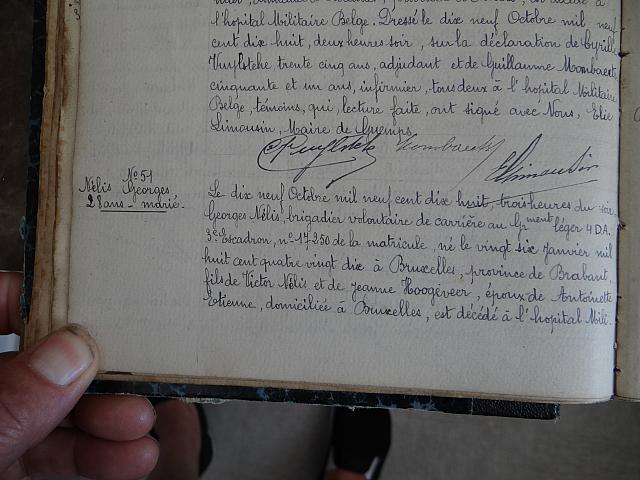 l'hopital Militaire Belge. Dressé le dix neuf Octobre mil neuf
cent dix huit, deux heures soir, sur la déclaration de Cyrille
Vuylsteke, trente cinq ans, adjudant et de Guillaume Mombaerts
cinquante et un ans, infirmier, tous deux à l'hopital Militaire
Belge, témoins, qui, lecture faite, ont signé avec Nous, Elie
Limousin, Maire de Guemps.
CVuylsteke Mombaerts ELimousin
No 51
Nélis Georges
28 ans - marié.
Le dix neuf Octobre mil neuf cent dix huit, trois heures du soir
Georges Nélis, brigadier volontaire de carrière au Gpment léger 4 D.A.
3e Escadron, no 17250 de la matricule, né le vingt six janvier mil
huit cent quatre vingt dix à Bruxelles, province de Brabant,
fils de Victor Nélis et de Jeanne Hoogeveer, époux de Antoinette
Etienne, domicilié à Bruxelles, est décédé à l'hopital Mili-